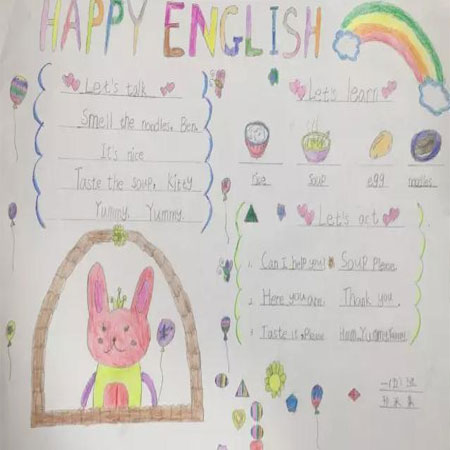 HAPPY ENGLISH
Let's talk
Smell the noodles, Ben.
It's nice
Taste the soup, Kitty
Yummy. Yummy.
Let's learn
rice soup egg noodles
Let's act
1. Can I help you? Soup, please.
2. Here you are. Thank you.
3. Taste it, please Hmm, Yummy Yummy